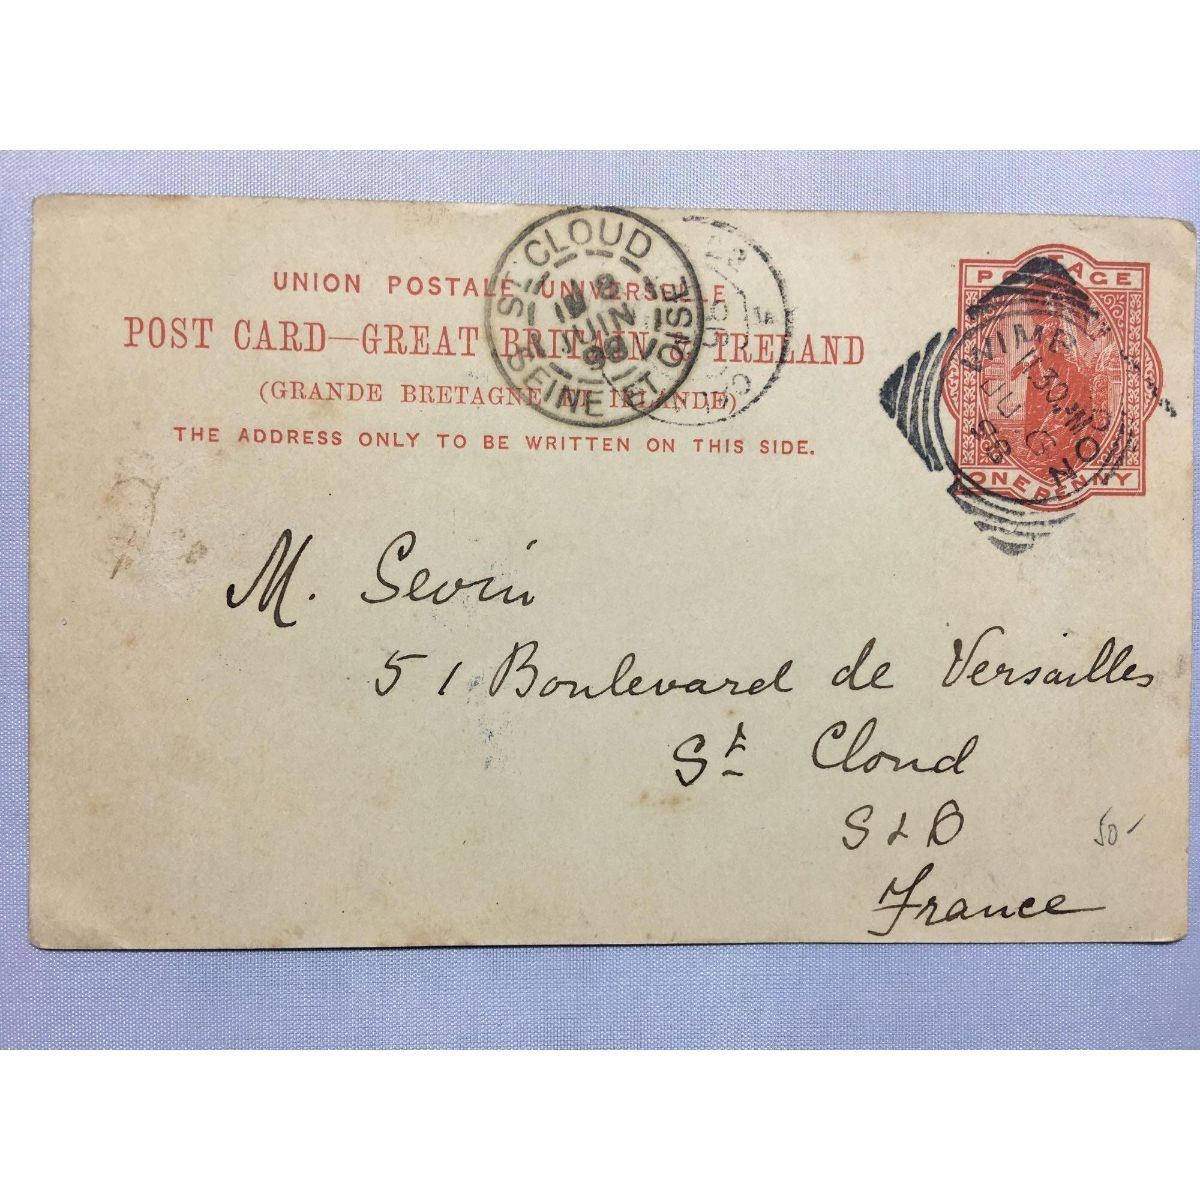 UNION POSTALE UNIVERSELLE
POST CARD—GREAT BRITAIN & IRELAND
(GRANDE BRETAGNE ET IRLANDE)
THE ADDRESS ONLY TO BE WRITTEN ON THIS SIDE.
ST CLOUD
8
JUIN
98
SEINE ET OISE
POSTAGE
ONE PENNY
WIMBLEDON
1 30 PM
JU 6
98
M. Sevin
51 Boulevard de Versailles
St Cloud
S & O
France
50-